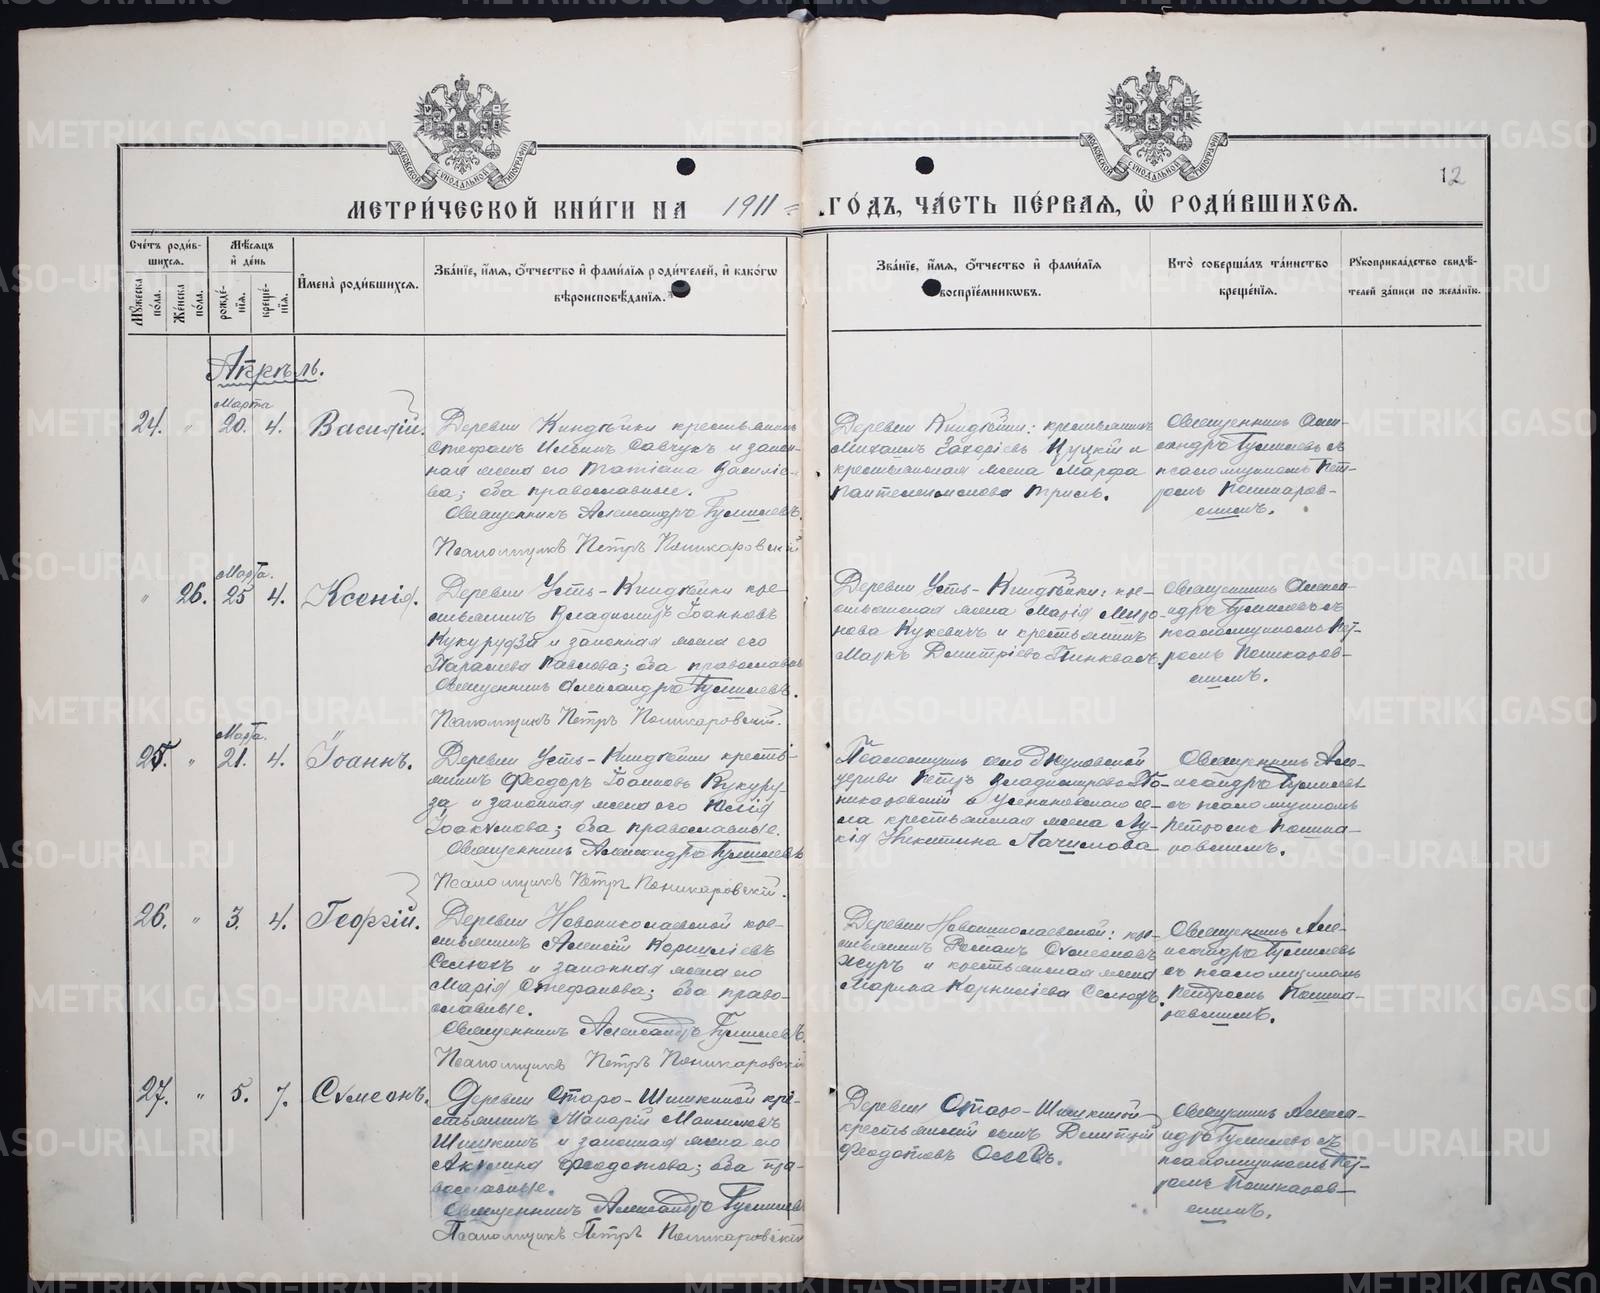 МОСКОВСКОЙ СѴНОДАЛЬНОЙ ТИПОГРАФІИ
МОСКОВСКОЙ СѴНОДАЛЬНОЙ ТИПОГРАФІИ
12
МЕТРИ́ЧЕСКОЙ КНИ́ГИ НА 1911 ГО́ДЪ, ЧА́СТЬ ПЕ́РВАЯ, Ѡ РОДИ́ВШИХСЯ.
Сче́тъ роди́в-
шихся.
Мѣ́сяцъ
и̑ де́нь
Мꙋ́жеска по́ла.
Же́нска по́ла.
рожде́-
нїя.
креще́-
нїя.
И҆мена̀ роди́вшихся.
Зва́нїе, и҆́мя, ѻ҆́тчество и҆ фами́лїя роди́телей, и҆ како́гѡ
вѣроисповѣ́данїя.
Зва́нїе, и҆́мя, ѻ҆́тчество и҆ фами́лїя
воспрїе́мникѡвъ.
Кто̀ соверша́лъ та́инство
креще́нїя.
Рꙋкоприкла́дство свидѣ́-
телей за́писи по жела́нїю.
Апрѣль.
Марта
24. " 20. 4. Василій.
Деревни Киндѣйки крестьянинъ
Стефанъ Ильинъ Савчукъ и закон-
ная жена его Татіана Василіе-
ва; оба православные.
Священникъ Александръ Гумилевъ.
Псаломщикъ Петръ Поникаровскій
Деревни Киндѣйки: крестьянинъ
Михаилъ Захаріевъ Цуцкій и
крестьянская жена Марфа
Пантелеимонова
Священникъ Алек-
сандръ Гумилевъ съ
псаломщикомъ Пет-
ромъ Поникаров-
скимъ.
Марта.
" 26. 25 4. Ксенія.
Деревни Усть-Киндѣйки кре-
стьянинъ Владимиръ Іоанновъ
Кукурудза и законная жена его
Параскева Павлова; оба православн
Священникъ Александръ Гумилевъ.
Псаломщикъ Петръ Поникаровскій.
Деревни Усть-Киндѣйки: кре-
стьянская жена Марія Миро-
нова Кукевичъ и крестьянинъ
Маркъ Димитріевъ
Священникъ Алекса-
ндръ Гумилевъ съ
псаломщикомъ Пет-
ромъ Поникаров-
скимъ.
Марта.
25. " 21. 4. Іоаннъ.
Деревни Усть-Киндѣйки кресть-
янинъ Феодоръ Іоанновъ Кукуру-
за и законная жена его Юлія
Іоакимова; оба православные.
Священникъ Александръ Гумилевъ
Псаломщикъ Петръ Поникаровскій.
Псаломщикъ
церкви Петръ Владимировъ По-
никаровскій и Успеновского се-
ла крестьянская жена Лу-
кія Никитина
Священникъ Але-
ксандръ Гумилевъ
съ псаломщикомъ
Петромъ Поника-
ровскимъ.
26. " 3. 4. Георгій.
Деревни Новониколаевской кре-
стьянинъ Алексій Корниліевъ
Селюкъ и законная жена его
Марія Стефанова; оба право-
славные.
Священникъ Александръ Гумилевъ.
Псаломщикъ Петръ Поникаровскій
Деревни Новониколаевской: кре-
стьянинъ Романъ Сѵмеоновъ
и крестьянская жена
Марина Корниліева Селюкъ.
Священникъ Але-
ксандръ Гумилевъ
съ псаломщикомъ
Петромъ Поника-
ровскимъ.
27. " 5. 7. Сѵмеонъ.
Деревни Старо-Шишкиной кре-
стьянинъ Макарій Максимовъ
Шишкинъ и законная жена его
Акилина Феодотова; оба пра-
вославные.
Священникъ Александръ Гумилевъ
Псаломщикъ Петръ Поникаровскій
Деревни Старо-Шишкиной
крестьянскій сынъ Димитрій
Феодотовъ
Священникъ Алекса-
ндръ Гумилевъ съ
псаломщикомъ Пет-
ромъ Поникаров-
скимъ.
METRIKI.GASO-URAL.RU